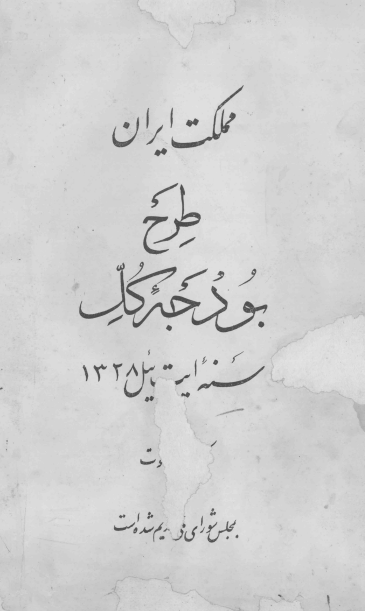 مملکت ایران
طرح
بودجهٔ کل
سنهٔ ایت ئیل ۱۳۲۸
بمجلس شورای شده است